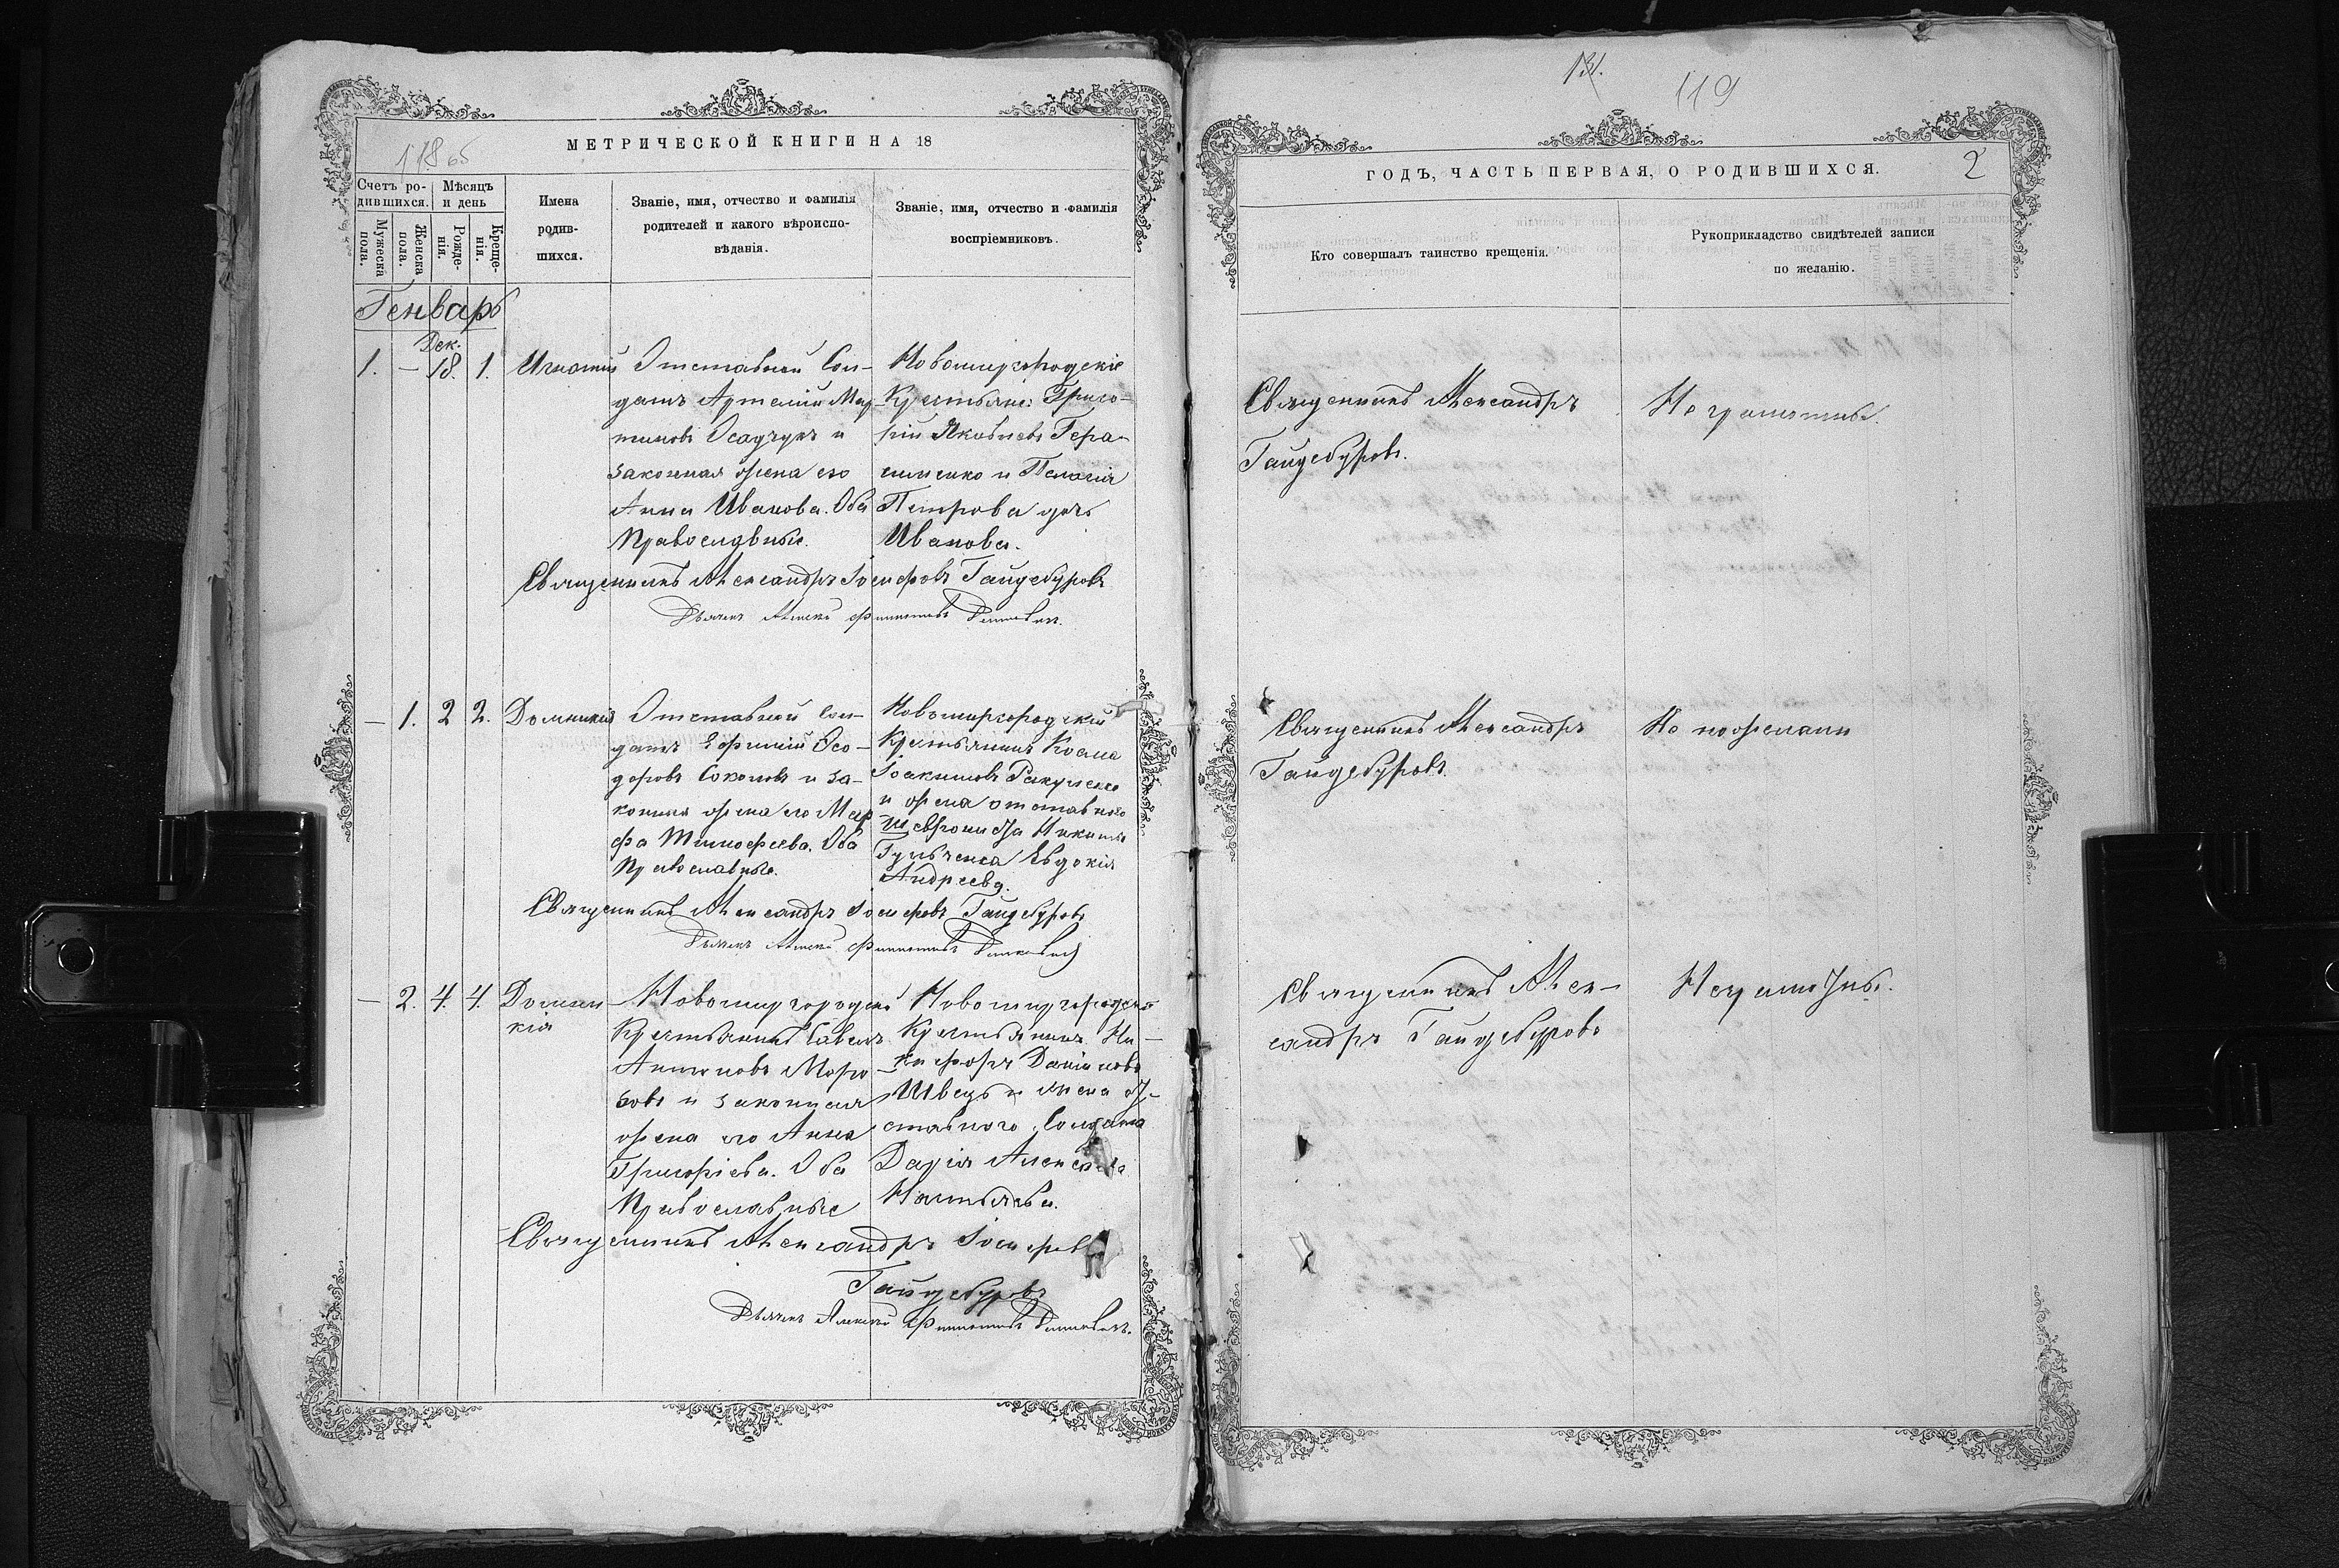 МЕТРИЧЕСКОЙ КНИГИ НА 18
118об
Счетъ ро-
дившихся.
Мѣсяцъ
и день
Мужеска
пола.
Женска
пола.
Рожде-
нія.
Креще-
нія.
Имена
родив-
шихся.
Званіе, имя, отчество и фамилія
родителей и какого вѣроиспо-
вѣданія.
Званіе, имя, отчество и фамилія
воспріемниковъ.
Генварь
Дек.
1. — 18. 1. Игнатій
Отставной Сол-
датъ Артемій Мар-
тиновъ Осадчукъ и
законная жена его
Анна Иванова. Оба
Православные.
Новомиргородскіе
Крестьяне: Григо-
рій Яковлевъ Гера-
сименко и Пелагія
Петрова дочь
Иванова.
Священникъ Александръ Іосифовъ Гайдебуровъ
Дьячекъ Алексѣй Филиповъ
— 1. 2 2. Домникія
Отставной сол-
датъ Ефимій Ѳео-
доровъ Соколовъ и за-
конная жена его Мар
фа Тимофеева. Оба
Православные.
Новомиргородскій
Крестьянинъ Косма
Іоакимовъ
и жена отставного
Никиты
Евдокія
Андреева.
Священникъ Александръ Іосифовъ Гайдебуровъ
Дьячекъ Алексѣй Филиповъ
— 2. 4. 4. Домни
кія
Новомиргородскій
Крестьянинъ Савелій
Антоновъ Моро
зовъ и законная
жена его Анна
Григоріева. Оба
Православные
Новомиргородскій
Крестьянинъ Ни-
кифоръ Даниловъ
Швецъ и жена От-
ставного Солдата
Дарія
Священникъ Александръ Іосифовъ
Гайдебуровъ
Дьячекъ Алексѣй Филиповъ
119
ГОДЪ, ЧАСТЬ ПЕРВАЯ, О РОДИВШИХСЯ.
2
Кто совершалъ таинство крещенія.
Рукоприкладство свидѣтелей записи
по желанію.
Священникъ Александръ
Гайдебуровъ.
Неграмотны.
Священникъ Александръ
Гайдебуровъ.
Не пожелали
Священникъ Алек-
сандръ Гайдебуровъ
Неграмотны.